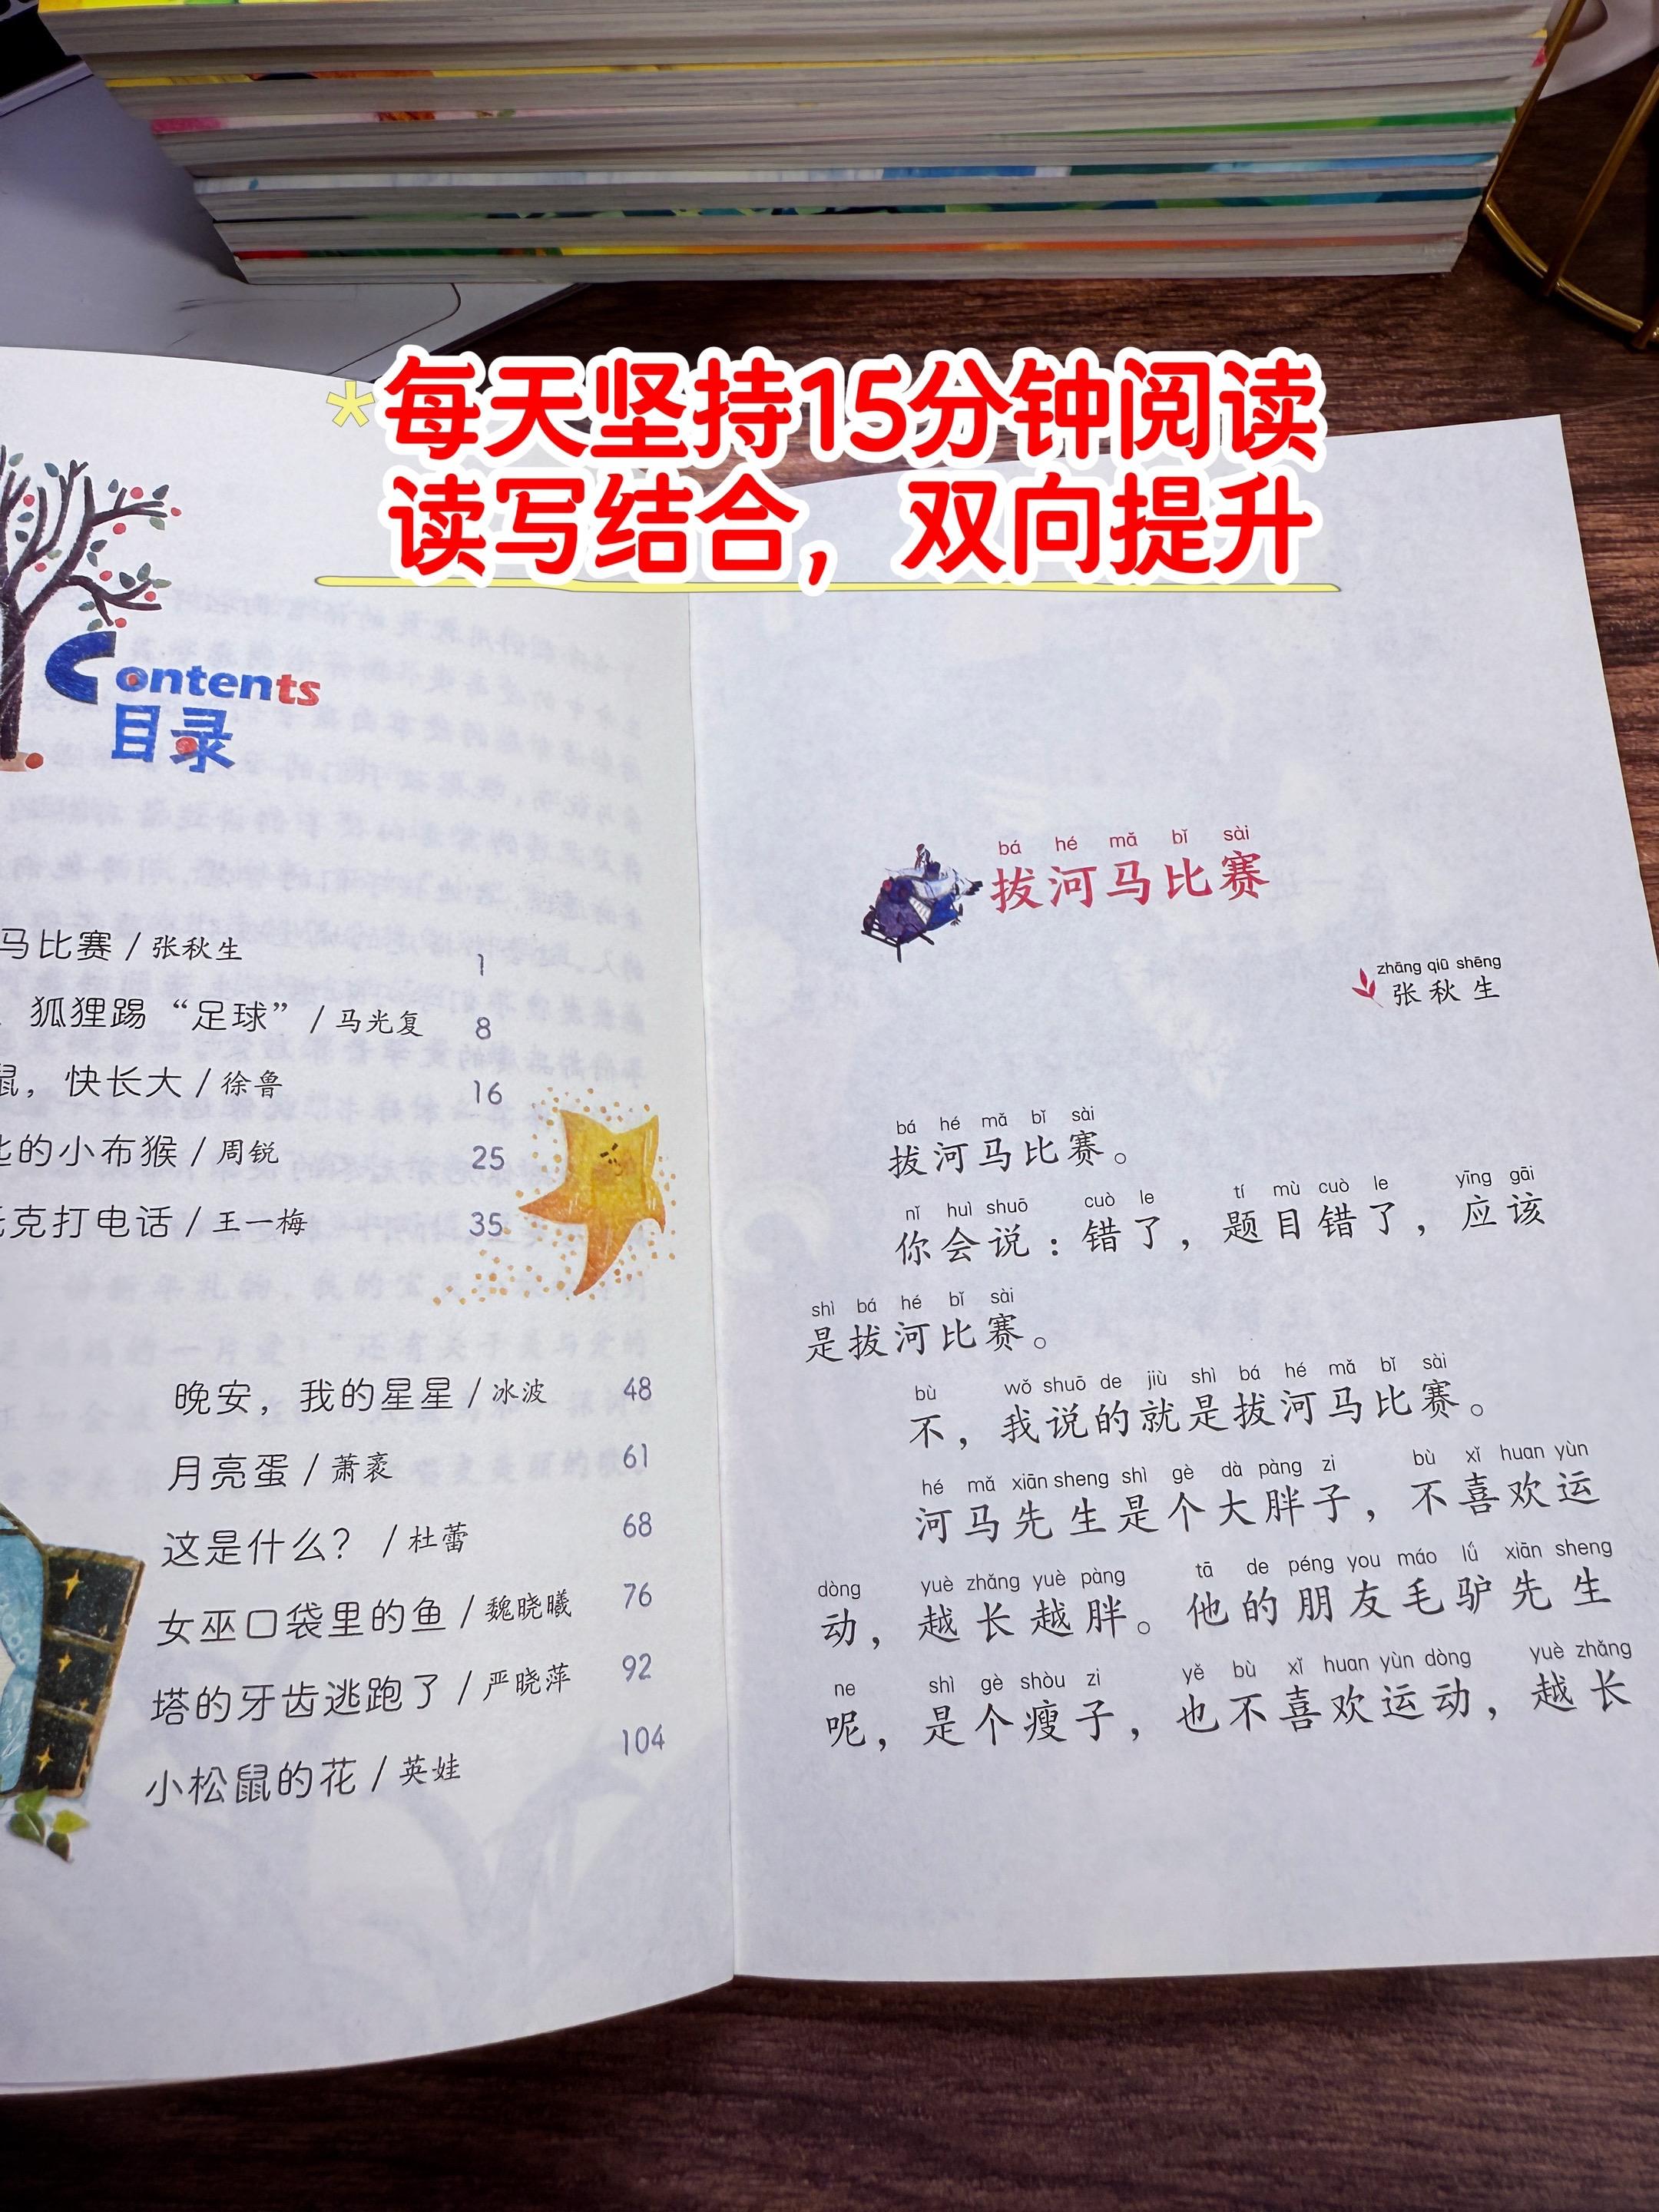 每天坚持15分钟阅读
读写结合，双向提升
Contents
目录
马比赛 / 张秋生 1
狐狸踢“足球” / 马光复 8
鼠，快长大 / 徐鲁 16
的小布猴 / 周锐 25
克打电话 / 王一梅 35
晚安，我的星星 / 冰波 48
月亮蛋 / 萧袤 61
这是什么？ / 杜蕾 68
女巫口袋里的鱼 / 魏晓曦 76
塔的牙齿逃跑了 / 严晓萍 92
小松鼠的花 / 英娃 104
bá hé mǎ bǐ sài
拔河马比赛
zhāng qiū shēng
张秋生
bá hé mǎ bǐ sài
拔河马比赛。
nǐ huì shuō cuò le tí mù cuò le yīng gāi
你会说：错了，题目错了，应该
shì bá hé bǐ sài
是拔河比赛。
bù wǒ shuō de jiù shì bá hé mǎ bǐ sài
不，我说的就是拔河马比赛。
hé mǎ xiān sheng shì gè dà pàng zi bù xǐ huan yùn
河马先生是个大胖子，不喜欢运
dòng yuè zhǎng yuè pàng tā de péng you máo lǘ xiān sheng
动，越长越胖。他的朋友毛驴先生
ne shì gè shòu zi yě bù xǐ huan yùn dòng yuè zhǎng
呢，是个瘦子，也不喜欢运动，越长